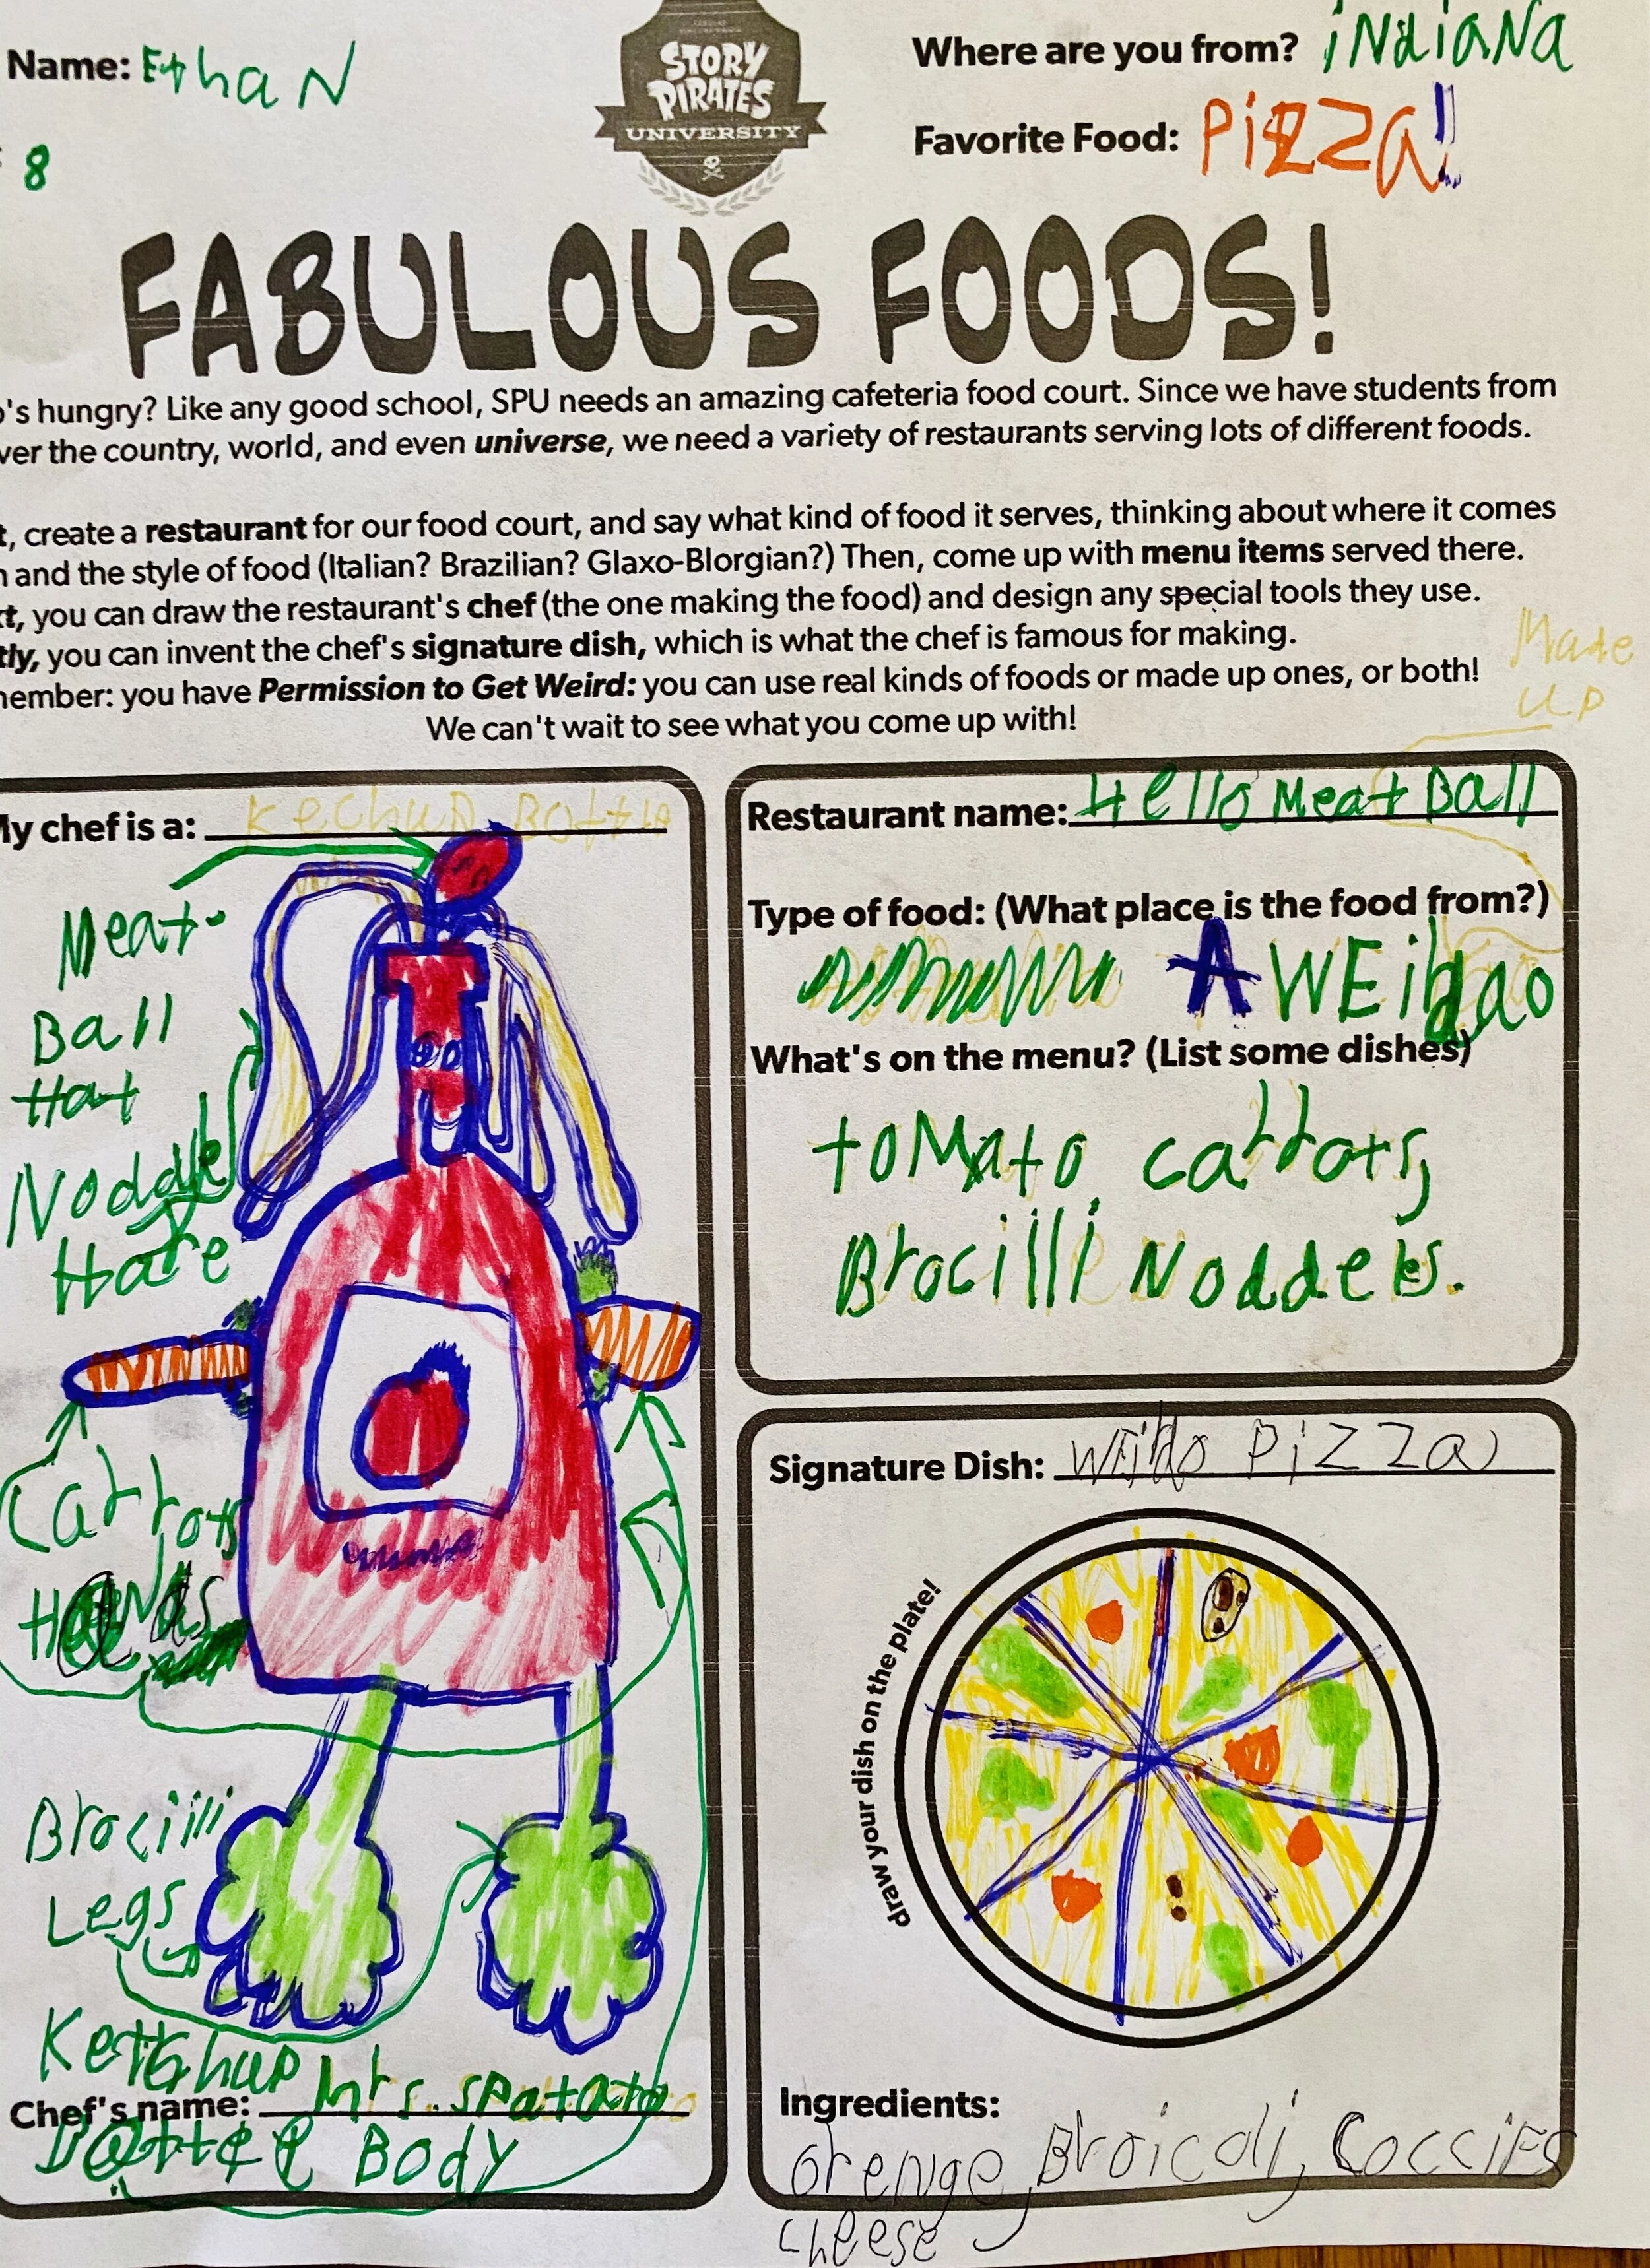 Name: EthaN
STORY
PIRATES
UNIVERSITY
Where are you from? iNdiaNa
Favorite Food: PiZZa!
8
FABULOUS FOODS!
's hungry? Like any good school, SPU needs an amazing cafeteria food court. Since we have students from
ver the country, world, and even universe, we need a variety of restaurants serving lots of different foods.
t, create a restaurant for our food court, and say what kind of food it serves, thinking about where it comes
and the style of food (Italian? Brazilian? Glaxo-Blorgian?) Then, come up with menu items served there.
t, you can draw the restaurant's chef (the one making the food) and design any special tools they use.
tly, you can invent the chef's signature dish, which is what the chef is famous for making.
member: you have Permission to Get Weird: you can use real kinds of foods or made up ones, or both!
We can't wait to see what you come up with!
Made
UP
My chef is a: Kechup Bottle
Meat
Ball
Hat
Noddle
Hare
Carrots
Hands
Brocilli
Legs
Ketchup
Chef's name: Mrs. spatato
Bottel Body
Restaurant name: Hello Meat Ball
Type of food: (What place is the food from?)
What's on the menu? (List some dishes)
toMato, carrots,
Brocilli Noddels.
Signature Dish: PiZZa
draw your dish on the plate!
Ingredients:
orenge, Broicoli, CocciES
cheese